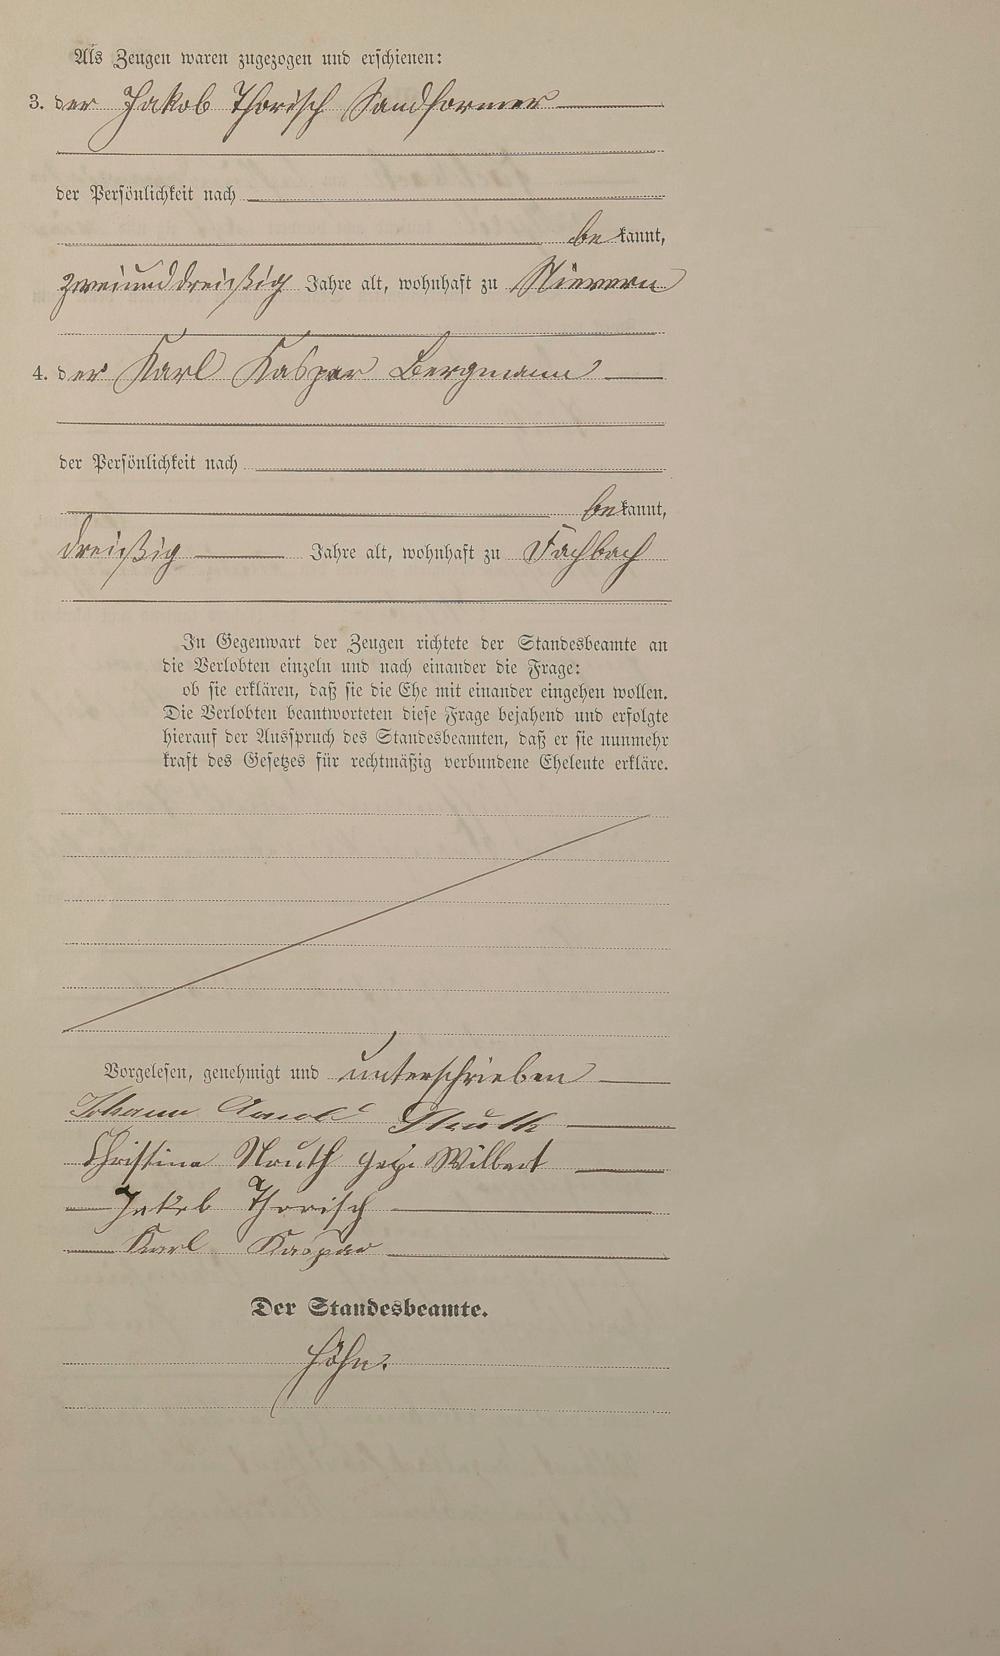 Als Zeugen waren zugezogen und erschienen:
3. der Jakob Thorisch Sandformer
der Persönlichkeit nach
bekannt,
zweiunddreißig Jahre alt, wohnhaft zu Nievern
4. der Karl Kaspar Bergmann
der Persönlichkeit nach
bekannt,
dreißig Jahre alt, wohnhaft zu Fachbach
In Gegenwart der Zeugen richtete der Standesbeamte an
die Verlobten einzeln und nach einander die Frage:
ob sie erklären, daß sie die Ehe mit einander eingehen wollen.
Die Verlobten beantworteten diese Frage bejahend und erfolgte
hierauf der Ausspruch des Standesbeamten, daß er sie nunmehr
kraft des Gesetzes für rechtmäßig verbundene Eheleute erkläre.
Vorgelesen, genehmigt und unterschrieben
Johann
Christina Wilbert
Jakob Thorisch
Karl Kaspar
Der Standesbeamte.
Höhn.